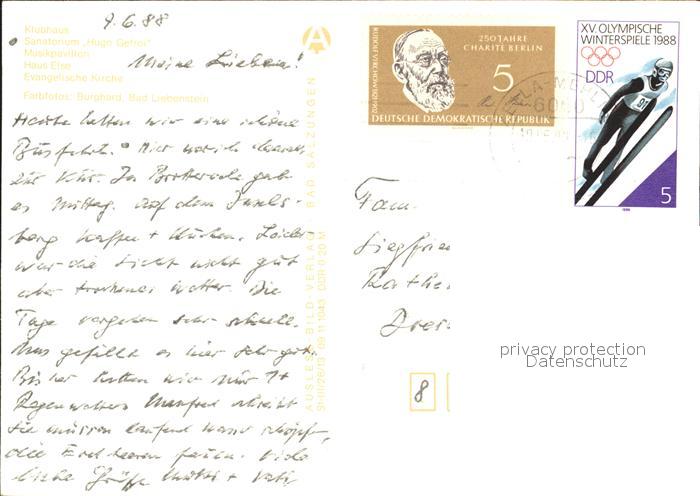 9.6.88
Klubhaus
Sanatorium „Hugo Gefroi"
Musikpavillon
Haus Else
Evangelische Kirche
Farbfotos: Burghard, Bad Liebenstein
Meine Lieben!
Heute hatten wir eine schöne
Busfahrt. Hier war ich
zur Kur. In Brotterode gab
es Mittag. Auf dem Insels-
berg Kaffee + Kuchen. Leider
war die Sicht nicht gut
aber trockenes Wetter. Die
Tage vergehen sehr schnell.
Uns gefällt es hier sehr gut.
Bisher hatten wir nur 1x
Regenwetter. Manfred schreibt
sie müssen laufend Wasser schöpf-
die Erdbeeren
liche Grüße Mutti + Vati
AUSLESE-BILD-VERLAG · BAD SALZUNGEN
DDR 0,20 M
RUDOLF VIRCHOW 1821-1902
250 JAHRE
CHARITÉ BERLIN
5
DEUTSCHE DEMOKRATISCHE REPUBLIK
XV. OLYMPISCHE
WINTERSPIELE 1988
DDR
5
1988
6060
Fam.
Siegfrie
Kathe
Dres
8
privacy protection
Datenschutz